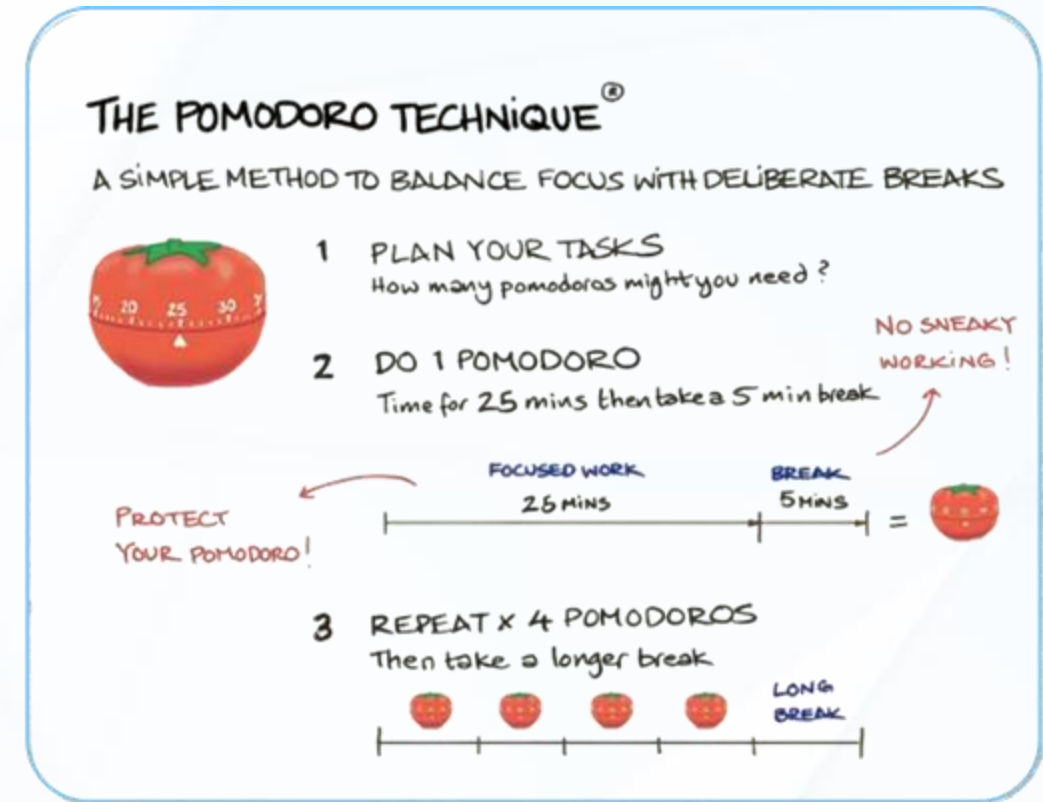 THE POMODORO TECHNIQUE®
A SIMPLE METHOD TO BALANCE FOCUS WITH DELIBERATE BREAKS
1 PLAN YOUR TASKS
How many pomodoros might you need?
20 25 30
2 DO 1 POMODORO
Time for 25 mins then take a 5 min break
NO SNEAKY
WORKING!
FOCUSED WORK
25 MINS
BREAK
5 MINS
=
PROTECT
YOUR POMODORO!
3 REPEAT x 4 POMODOROS
Then take a longer break
LONG
BREAK